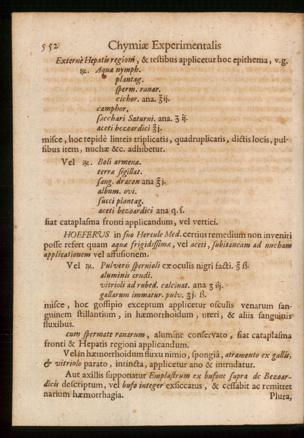 552 Chymiæ Experimentalis
Externè Hepatis regioni, & testibus applicetur hoc epithema, v.g.
℞. Aquæ nymph.
plantag.
sperm. ranar.
cichor. ana. ℥ij.
camphor.
sacchari Saturni. ana. ʒ ij.
aceti bezoardici ℥j.
misce, hoc tepidè linteis triplicatis, quadruplicatis, dictis locis, pul-
sibus item, nuchæ &c. adhibetur.
Vel ℞. Boli armenæ.
terræ sigillat.
sang. dracon ana ℥j.
album. ovi.
succi plantag.
aceti bezoardici ana q. s.
fiat cataplasma fronti applicandum, vel vertici.
HOEFERUS in suo Hercule Med. certius remedium non inveniri
posse refert quam aquæ frigidissimæ, vel aceti, subitaneam ad nucham
applicationem vel affusionem.
Vel ℞. Pulveris sperniolì ex oculis nigri facti. ℥ ß.
aluminis crudi.
vitrioli ad rubed. calcinat. ana ʒ iij.
gallarum immatur. pulv. ʒj. ß.
misce, hoc gossipio exceptum applicetur osculis venarum san-
guinem stillantium, in hæmorrhoidum, uteri, & aliis sanguinis
fluxibus.
cum spermate ranarum, alumine conservato, fiat cataplasma
fronti & Hepatis regioni applicandum.
Vel in hæmorrhoidum fluxu nimio, spongiâ, atramento ex gallis,
& vitriolo parato, intincta, applicetur ano & intrudatur.
Aut axillis supponatur Emplastrum ex bufone supra de Bezoar-
dicis descriptum, vel bufo integer exsiccatus, & cessabit ac remittet
narium hæmorrhagia. Plura,